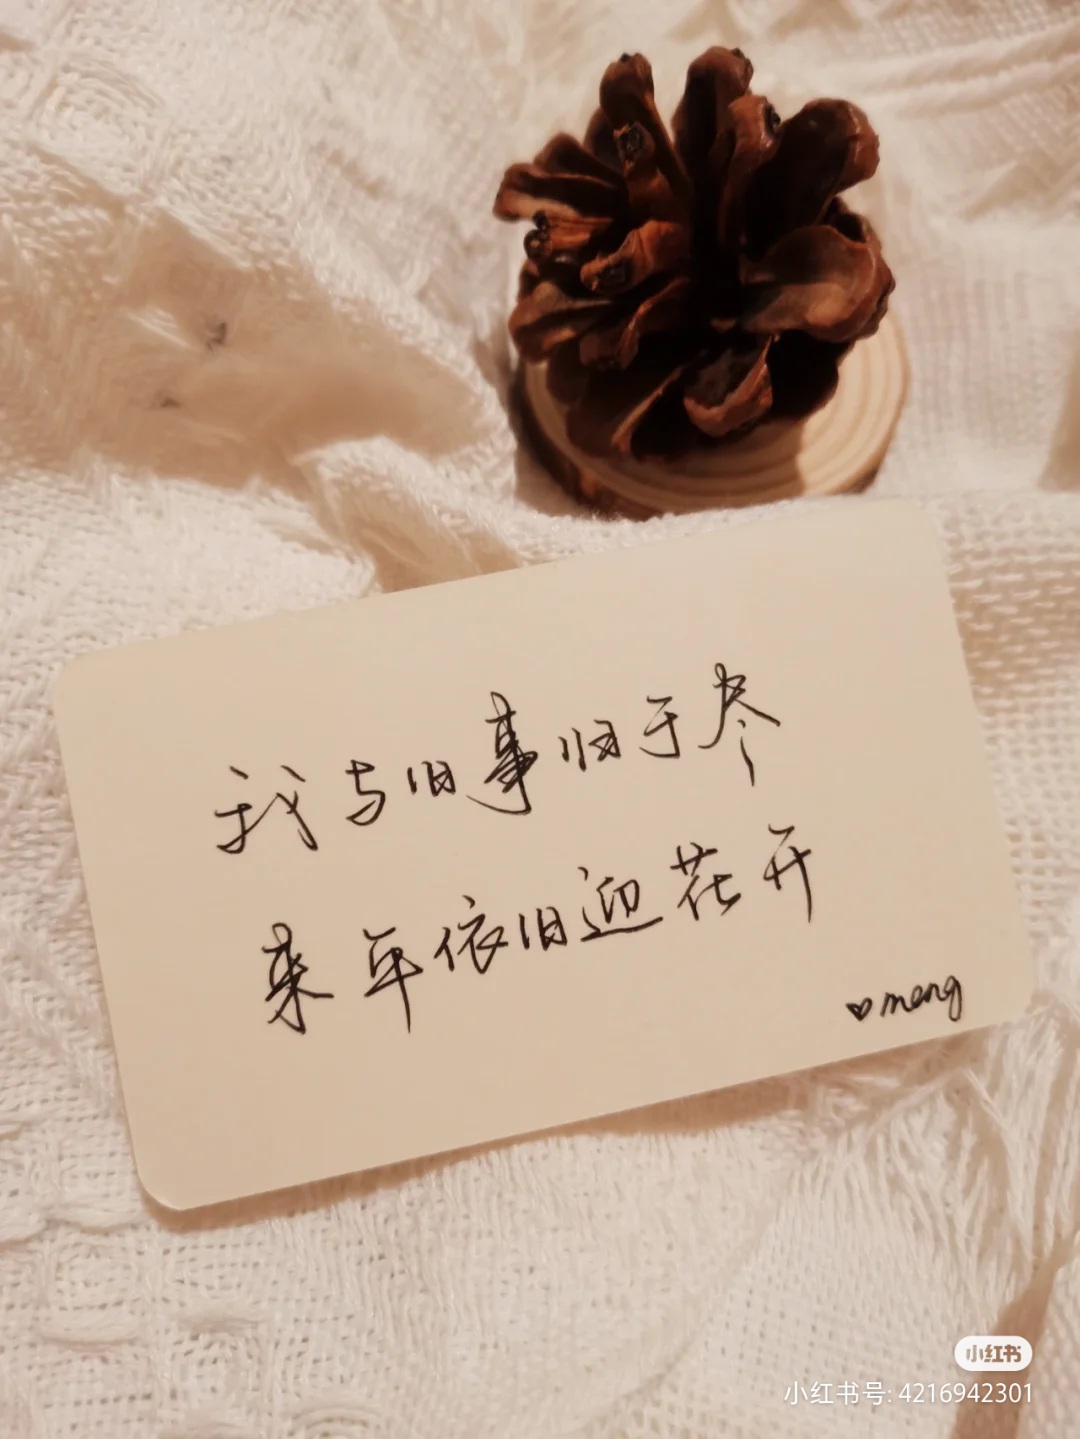 我与旧事归于尽
来年依旧迎花开
♡meng
小红书
小红书号: 4216942301